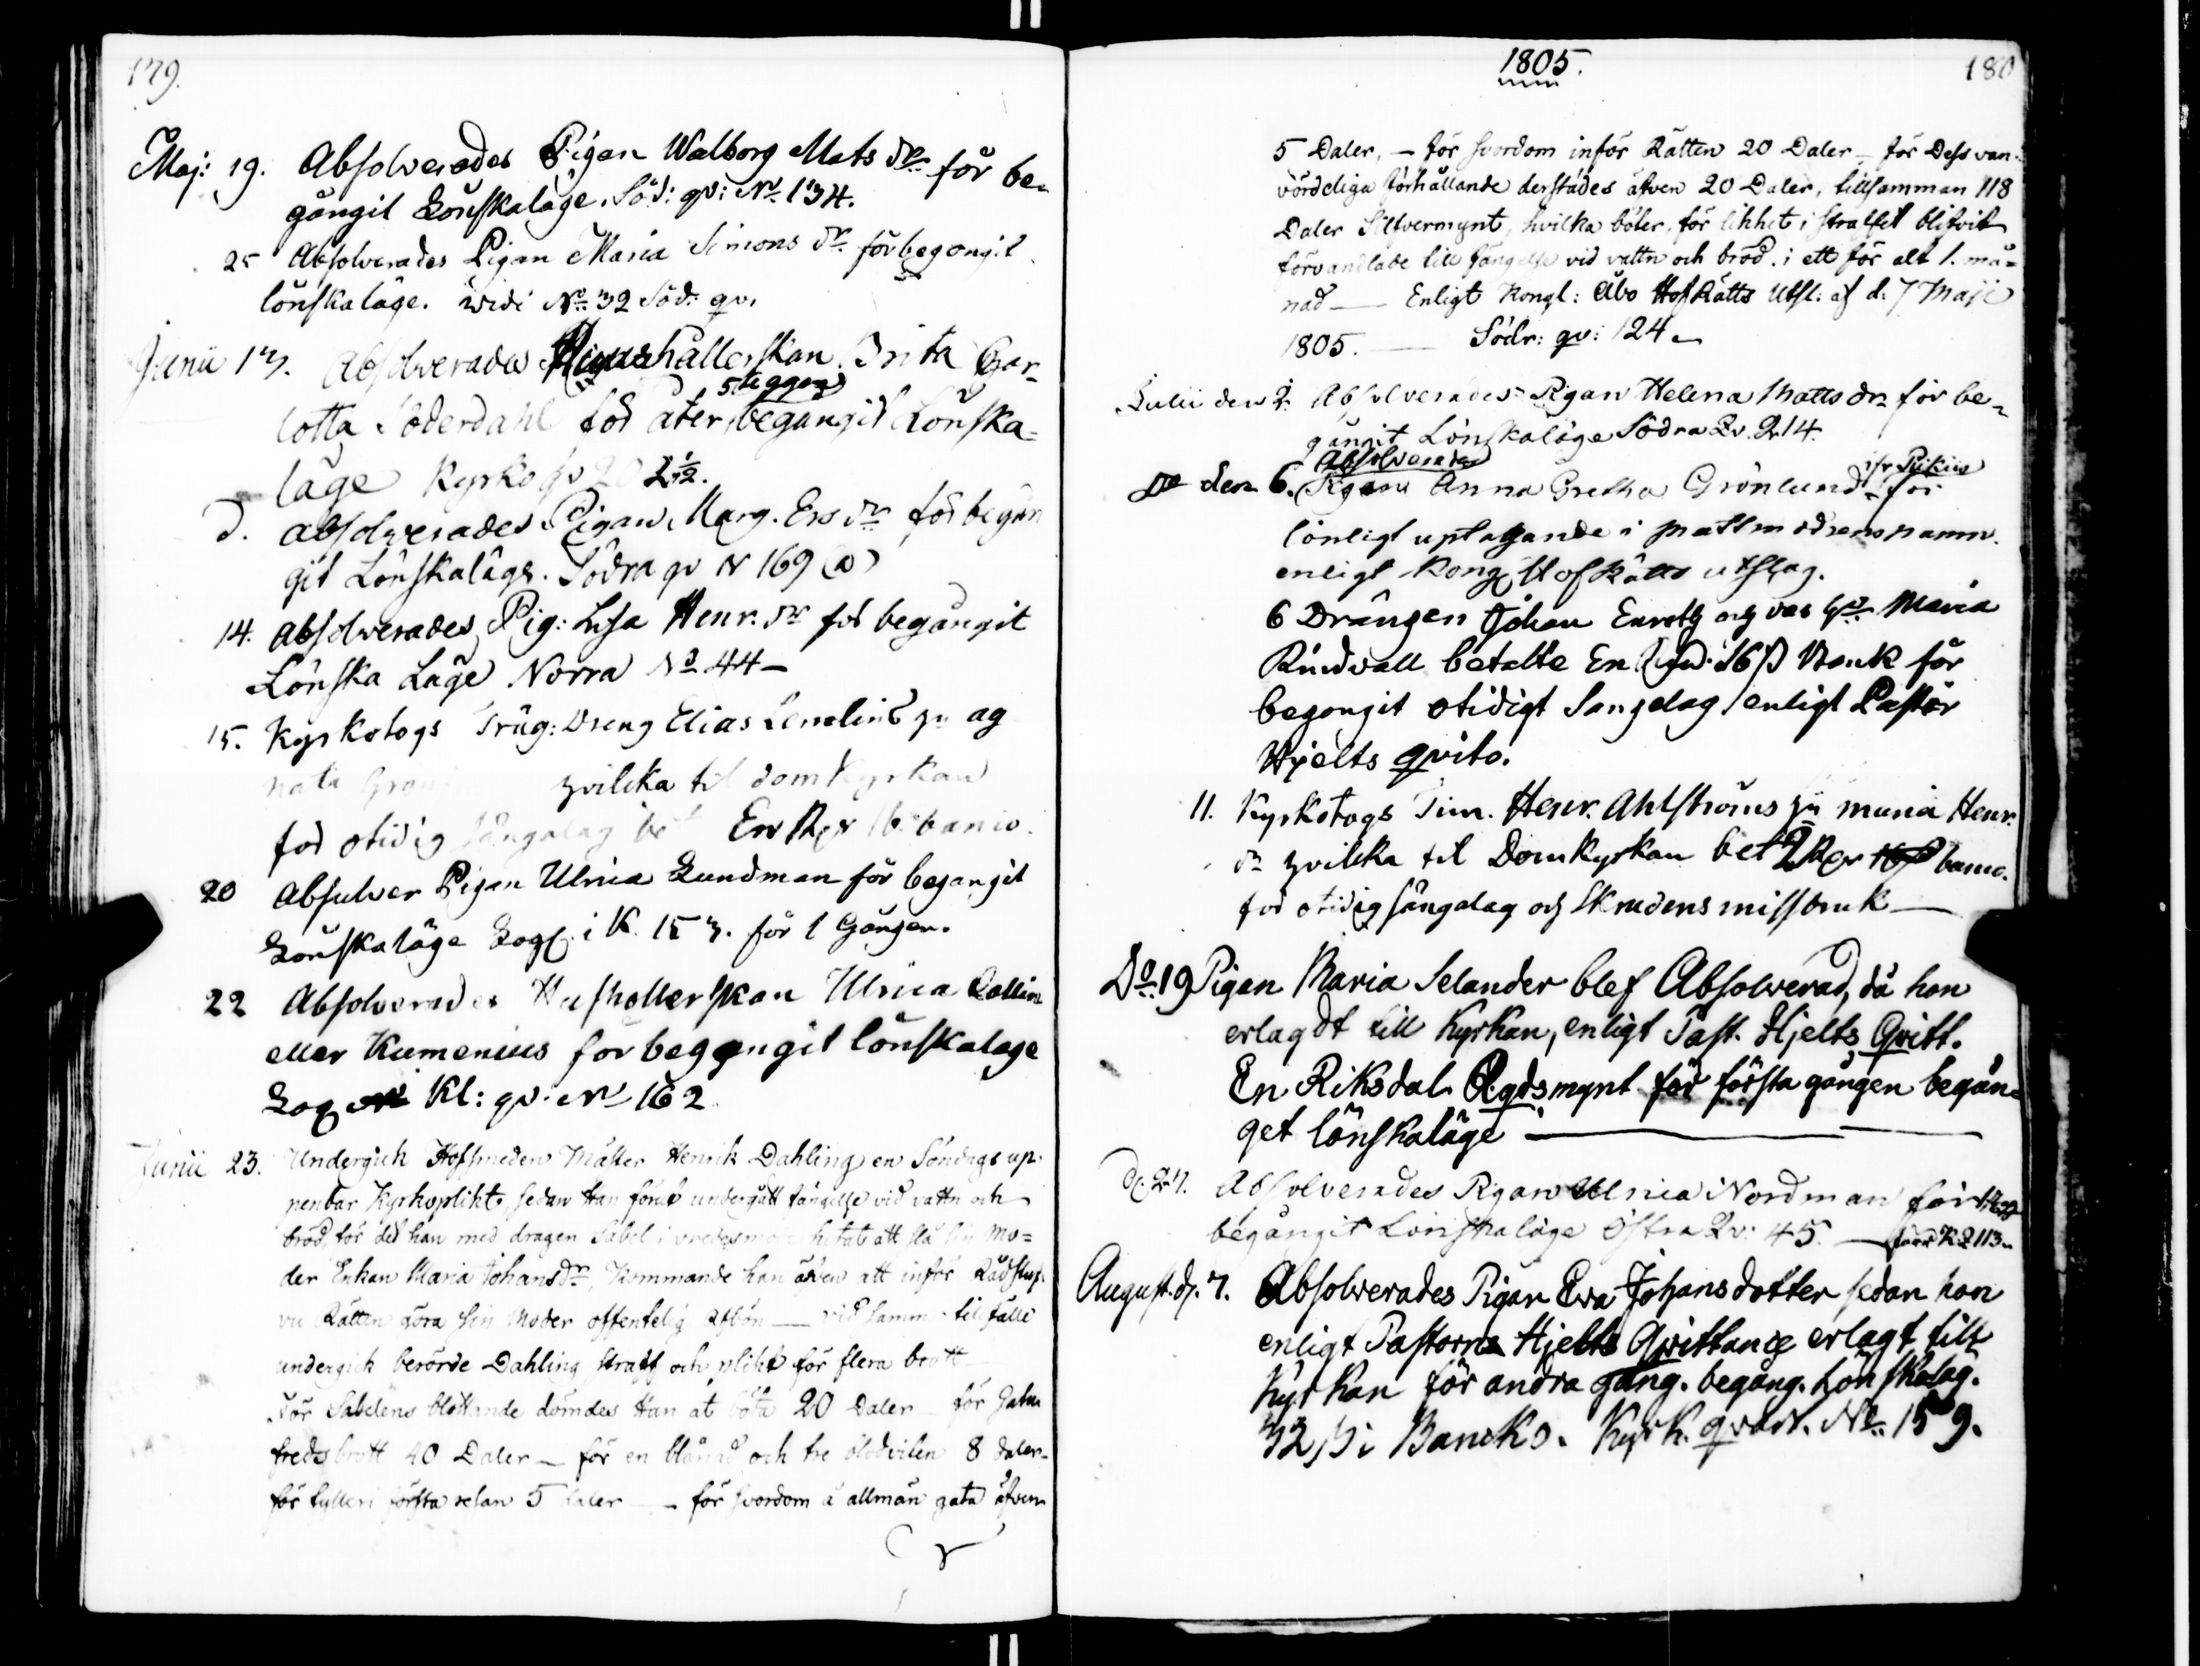 179.
Maj: 19. Absolverades Pigan Walborg Mats dr för be-
gångit Lönskaläge. Söd: qv: No 134.
25 Absolverades Pigan Maria Simons dr för begongit
lönskaläge. widi No 32 Söd: qv.
Junii 13. Absolverades hållerskan Brita Char-
5te gången
lotta Söderdahl för åter begångit Lönska-
läge Kyrko qv 202½.
d. absolverades Pigan Marg. Ers dr för begån
git Lönskaläge. Södra qv N 169 (a)
14. absolverades Pig: Lisa Henr. dr för begångit
Lönska Läge Norra No 44 –
15. Kyrkotogs Träg: Dreng Elias Lemelins ag
nata hvilcka til domkyrkan
för otidig sängalag En banco.
20 Absulver Pigan Ulrica Lundman för begangit
Lönskaläge i K. 153. för 1 Gången.
22 Absolverades Hushollerskan Ulrica Collin
eller Kumenius för begongit lönskalage
Kl: qv. No 162
Junii 23. Undergick Hofsmeden Mäster Henrik Dahling en Söndags up-
penbar Kyrkoplikt, sedan Han förut undergått fängelse vid vattn och
bröd, för det han med dragen Sabel i hotat att slå sin Mo-
der Enkan Maria Johansdr, Kommande han äfven att inför Rådstugu
vu Rätten göra sin Moder offentelig afbön — vid samma tillfälle
undergick berörde Dahling straff och plikt för flera brott
För Sabelens blottande dömdes Han at böta 20 Daler – för Gatu
fredsbrott 40 Daler – för en blånad och tre blodviten 8 daler –
för fylleri första resan 5 daler — för svordom å allmän gata äfven
1805.
180
5 Daler, – för svordom inför Rätten 20 Daler – för Dess van-
vördeliga förhållande derstädes äfven 20 Daler, tillsamman 118
Daler Silfvermynt, hvilka böter, för likhet i straffet blifvit
förvandlade till fängelse vid vattn och bröd i ett för alt 1. må-
nad — Enligt Kongl: Åbo HofRätts Utsl: af d: 7 Maji
1805. — Södr: qv: 124.
Julii den 2. Absolverades Pigan Helena Matts dr för be-
gångit Lönskaläge Södra Qv. 214.
Absolverades
Do den 6. Pigan Anna Gretha Grönlund för
lönligt uptagande i Nattm
enligt Kongl Hof Rätts utslag.
6 Drängen Johan och Maria
Rindvall betalte En 16 ß Bank för
begongit otidigt Sangelag enligt Pastor
Hjelts qvito.
11. Kyrkotogs Tim. Henr. Ahlströms Maria Henr.
dr hvilcka til Domkyrkan bet 2 banco.
för otidig sängalag och skrudens missbruk —
Do 19 Pigan Maria Selander blef Absolverad, då hon
erlagdt till Kyrkan, enligt Past. Hjelts Qvitt.
En Riksdal. Rgdsmynt för första gången begån-
get lönskaläge —
d. 27. Absolverades Pigan Ulrica Nordman för
begångit Lönskaläge Östra Qv: 45. —
August. d. 7. Absolverades Pigan Eva Johansdotter sedan hon
enligt Pastorns Hjelts Qvittance erlagt till
Kyrkan för andra gång. begång. Lönskaläg.
32 ß i Bancko. Kyrk. qvart. No. 159.